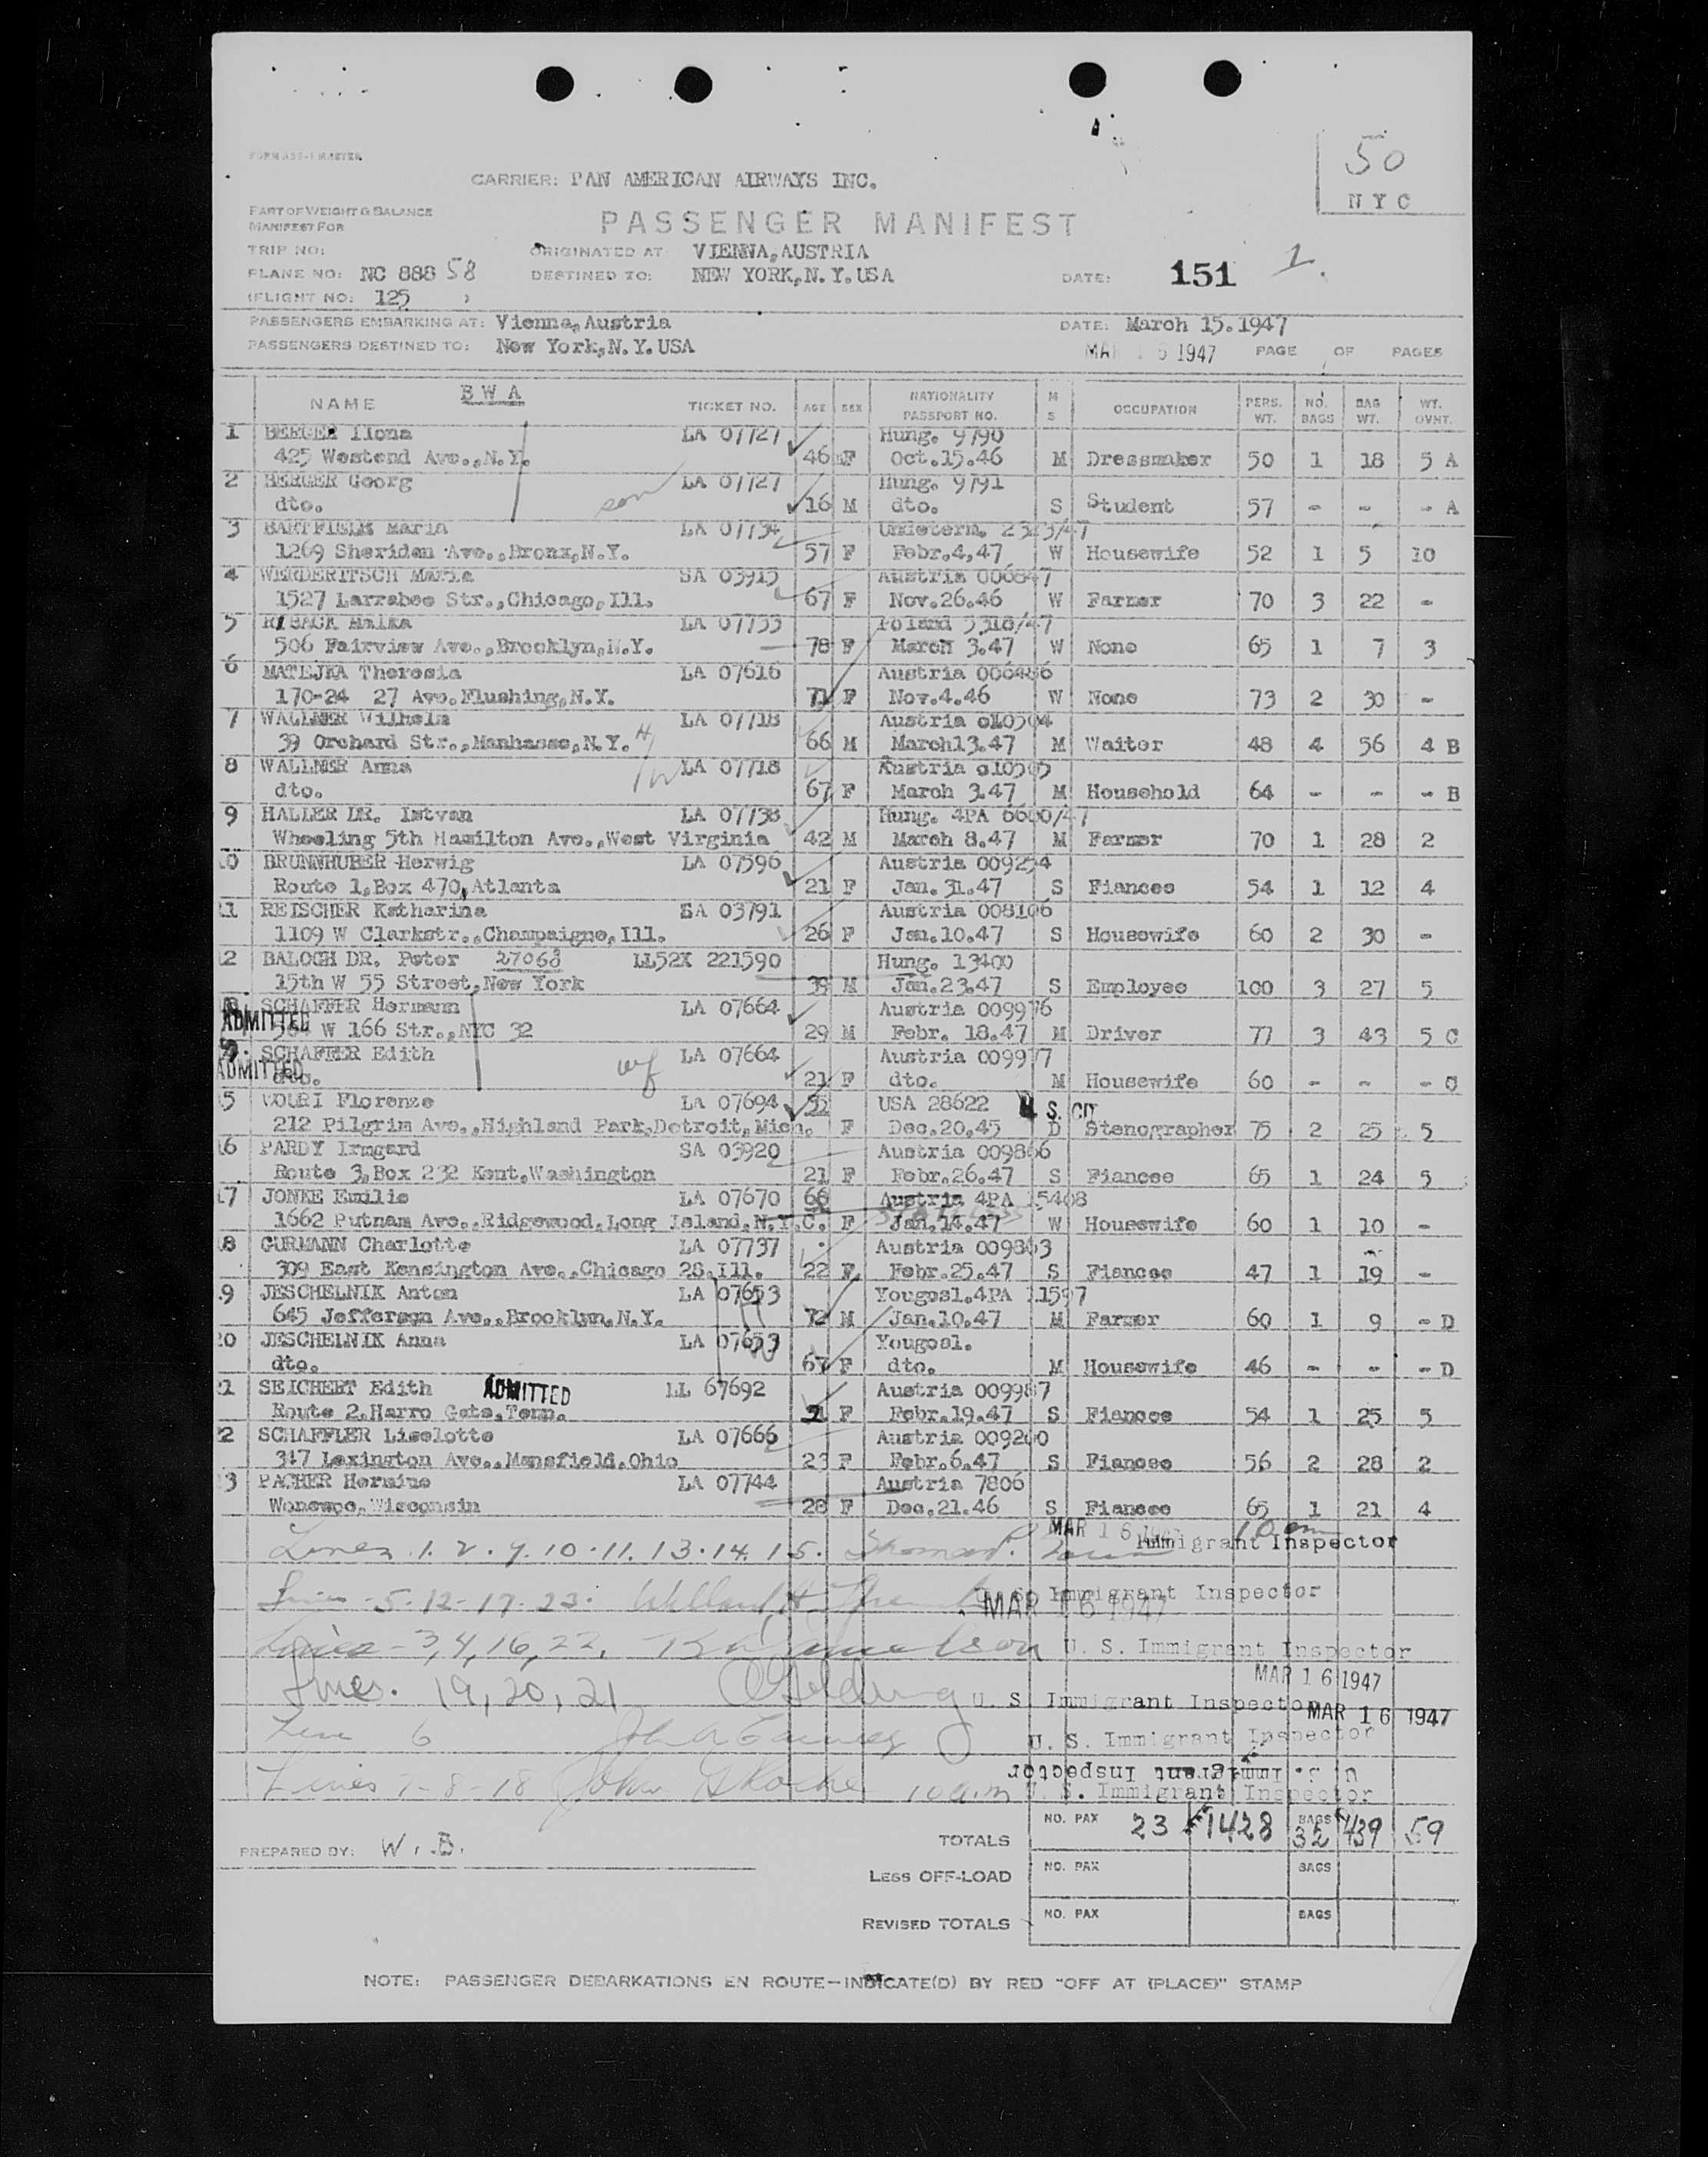 50
NYC
FORM 489-1 MASTER
CARRIER: PAN AMERICAN AIRWAYS INC.
PART OF WEIGHT & BALANCE
MANIFEST FOR
PASSENGER MANIFEST
TRIP NO: ORIGINATED AT: VIENNA, AUSTRIA
PLANE NO: NC 88858 DESTINED TO: NEW YORK, N.Y. USA DATE: 151 1.
(FLIGHT NO: 125 )
PASSENGERS EMBARKING AT: Vienna, Austria DATE: March 15. 1947
PASSENGERS DESTINED TO: New York, N.Y. USA MAR 16 1947 PAGE OF PAGES
BWA
NAME TICKET NO. AGE SEX NATIONALITY PASSPORT NO. M S OCCUPATION PERS. WT. NO. BAGS BAG WT. WT. OVNT.
1 BERGER Ilona LA 07727 Hung. 9790
425 Westend Ave., N.Y. 46 F Oct.15.46 M Dressmaker 50 1 18 5 A
2 BERGER Georg LA 07727 Hung. 9791
dto. son 16 M dto. S Student 57 - - - A
3 BARTFIELD Maria LA 07734 Undeterm. 2323/47
1269 Sheridan Ave., Bronx, N.Y. 57 F Febr.4,47 W Housewife 52 1 5 10
4 WERDERITSCH Maria SA 03915 Austria 006847
1527 Larrabee Str., Chicago, Ill. 67 F Nov.26.46 W Farmer 70 3 22 -
5 RYBACK Malka LA 07733 Poland 5318/47
506 Fairview Ave., Brooklyn, N.Y. 78 F March 3.47 W None 65 1 7 3
6 MATEJKA Theresia LA 07616 Austria 006486
170-24 27 Ave. Flushing, N.Y. 71 F Nov.4.46 W None 73 2 30 -
7 WALLNER Wilhelm LA 07718 Austria 010504
39 Orchard Str., Manhasse, N.Y. H 66 M March13.47 M Waiter 48 4 56 4 B
8 WALLNER Anna W LA 07718 Austria 010505
dto. 67 F March 3.47 M Household 64 - - - B
9 HALLER DR. Istvan LA 07738 Hung. 4PA 6600/47
Wheeling 5th Hamilton Ave., West Virginia 42 M March 8.47 M Farmer 70 1 28 2
10 BRUNNHUBER Herwig LA 07596 Austria 009254
Route 1, Box 470, Atlanta 21 F Jan.31.47 S Fiancee 54 1 12 4
11 REISCHER Katharina SA 03791 Austria 008106
1109 W Clarkstr., Champaigne, Ill. 26 F Jan.10.47 S Housewife 60 2 30 -
12 BALOGH DR. Peter 27068 LL52X 221590 Hung. 13400
15th W 55 Street, New York 39 M Jan.23.47 S Employee 100 3 27 5
SCHAFFER Hermann LA 07664 Austria 009976
ADMITTED W 166 Str., NYC 32 29 M Febr. 18.47 M Driver 77 3 43 5 C
SCHAFFER Edith wf LA 07664 Austria 009977
ADMITTED dto. 21 F dto. M Housewife 60 - - - C
15 Florenze LA 07694 55 USA 28622 U.S. CIT
212 Pilgrim Ave., Highland Park, Detroit, Mich. F Dec.20.45 D Stenographer 75 2 25 5
16 PARDY Irmgard SA 03920 Austria 009866
Route 3, Box 232 Kent, Washington 21 F Febr.26.47 S Fiancee 65 1 24 5
17 JONKE Emilie LA 07670 66 Austria 4PA 15408
1662 Putnam Ave., Ridgewood, Long Island, N.Y.C. F Jan.14.47 W Housewife 60 1 10 -
18 GURMANN Charlotte LA 07737 Austria 009863
309 East Kensington Ave., Chicago 28, Ill. 22 F Febr.25.47 S Fiancee 47 1 19 -
19 JESCHELNIK Anton LA 07653 H Yougosl. 4PA 11597
645 Jefferson Ave., Brooklyn, N.Y. 72 M Jan.10.47 M Farmer 60 1 9 - D
20 JESCHELNIK Anna LA 07653 W Yougosl.
dto. 67 F dto. M Housewife 46 - - - D
21 SEICHERT Edith ADMITTED LL 67692 Austria 009987
Route 2, Harro Gate, Tenn. 21 F Febr.19.47 S Fiancee 54 1 25 5
22 SCHAFFLER Liselotte LA 07666 Austria 009200
317 Lexington Ave., Mansfield, Ohio 23 F Febr.6.47 S Fiancee 56 2 28 2
23 PACHER Hermine LA 07744 Austria 7806
Wonewoc, Wisconsin 28 F Dec.21.46 S Fiancee 65 1 21 4
Lines 1. 2. 9. 10. 11. 13. 14. 15. MAR 16 1947 10 am Immigrant Inspector
Lines 5-12-17-23. U. S. Immigrant Inspector MAR 16 1947
Lines - 3,4,16,22. U. S. Immigrant Inspector
MAR 16 1947
Lines. 19, 20, 21 U. S. Immigrant Inspector MAR 16 1947
Line 6 U. S. Immigrant Inspector
U. S. Immigrant Inspector
Lines 7-8-18 John 10 a.m U. S. Immigrant Inspector
TOTALS NO. PAX 23 1428 BAGS 35 439 59
PREPARED BY: W.B.
LESS OFF-LOAD NO. PAX BAGS
REVISED TOTALS NO. PAX BAGS
NOTE: PASSENGER DEBARKATIONS EN ROUTE—INDICATE(D) BY RED "OFF AT (PLACE)" STAMP